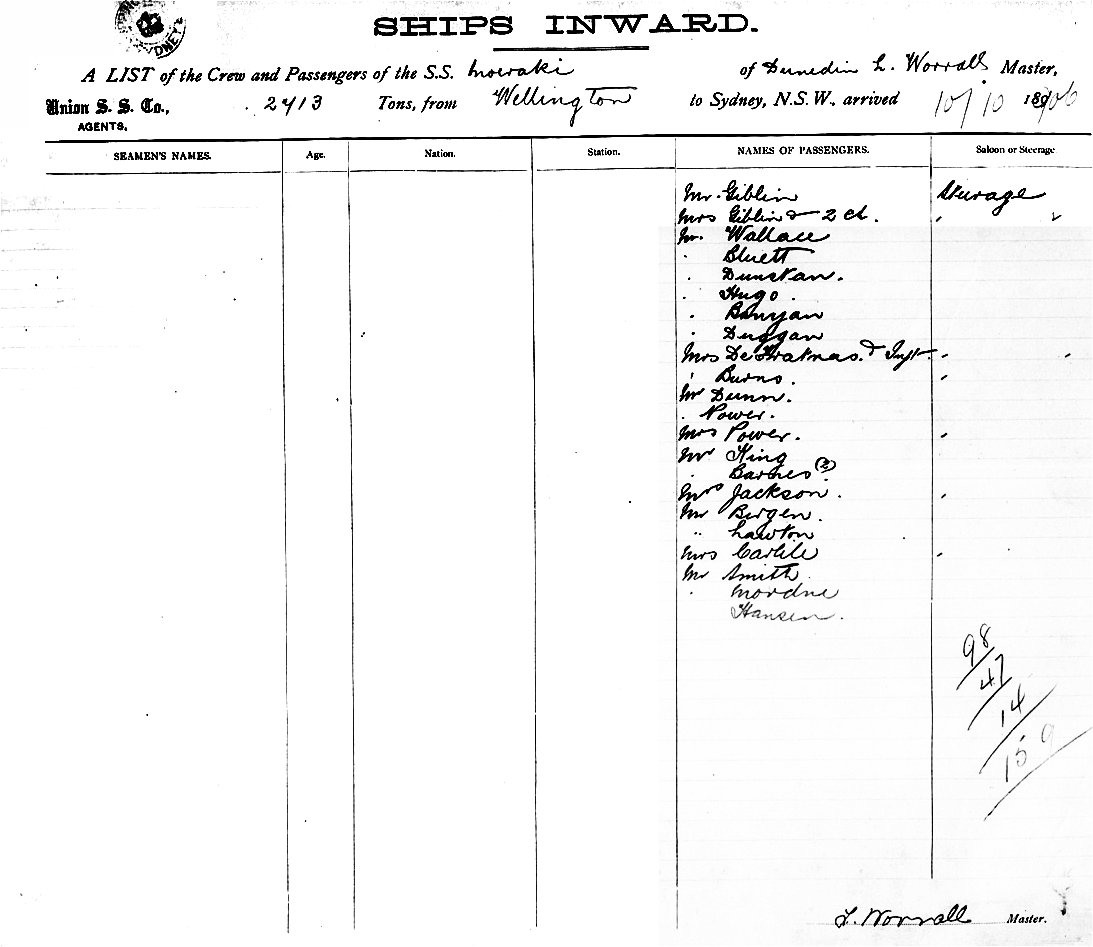 SYDNEY
SHIPS INWARD.
A LIST of the Crew and Passengers of the S.S. Moeraki of Dunedin L. Worrall Master,
Union S. S. Co., 2413 Tons, from Wellington to Sydney, N.S.W., arrived 10/10 1906
AGENTS.
SEAMEN'S NAMES. Age. Nation. Station. NAMES OF PASSENGERS. Saloon or Steerage
Mr. Giblin Steerage
Mrs Giblin & 2 Ch.
Mr. Wallace
Bluett
Dunstan.
Hugo.
Bunyan
Duggan
Mrs & Inft
Burns.
Mr Dunn.
Power.
Mrs Power.
Mr King
Barnes (2)
Mrs Jackson.
Mr Bergen.
" Lawton
Mrs Carlile
Mr Smith
Hansen.
98
47
14
159
L. Worrall Master.